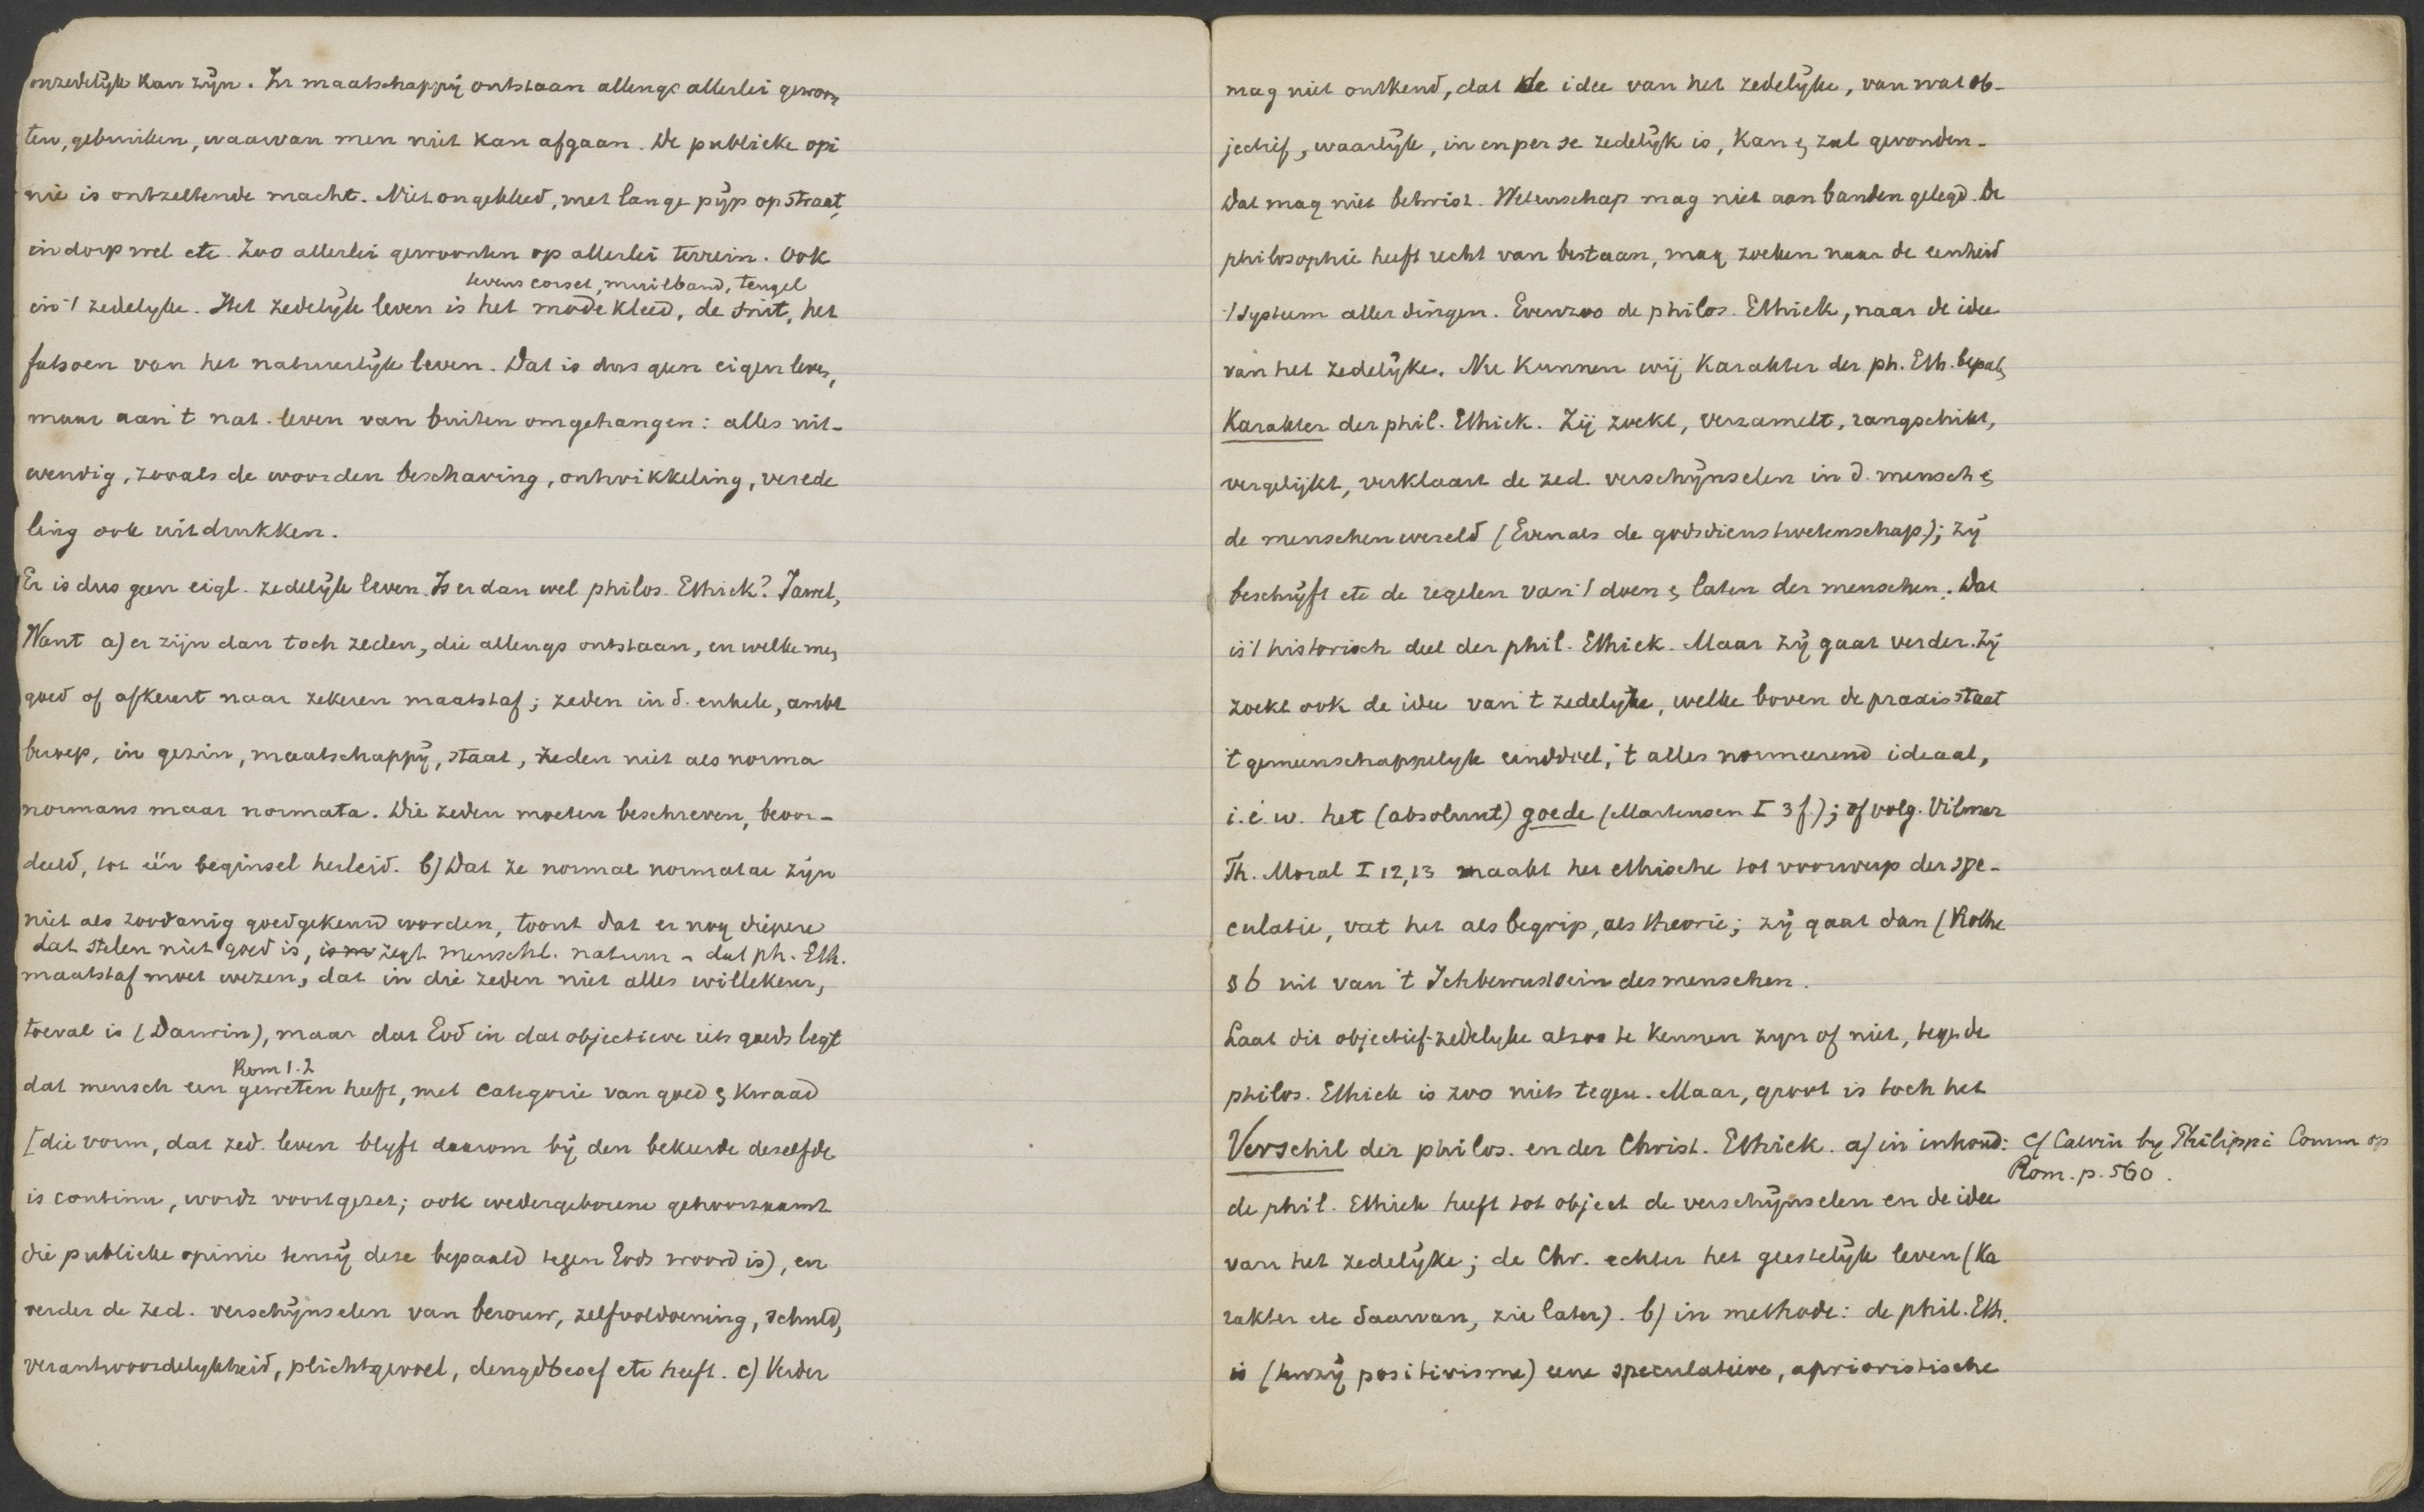 onzedelijk kan zijn. In maatschappij ontstaan allengs allerlei gewoon
ten, gebruiken, waarvan men niet kan afgaan. De publieke opi
nie is ontzettende macht. Niet ongekleed, met lange pijp op straat,
in dorp wel etc. Zoo allerlei gewoonten op allerlei terrein. Ook
levens corset, muilband, teugel
in 't zedelyke. Het zedelijk leven is het modekleed, de snit, het
fatsoen van het natuurlijke leven. Dat is dus geen eigen leven,
maar aan 't nat. leven van buiten omgehangen: alles uit-
wendig, zooals de woorden beschaving, ontwikkeling, verede
ling ook uitdrukken.
Er is dus geen eigl. zedelijk leven. Is er dan wel philos. Ethiek? Jawel,
Want a) er zijn dan toch zeden, die allengs ontstaan, en welke men
goed of afkeurt naar zekeren maatstaf; zeden in d. enkele, ambt
beroep, in gezin, maatschappij, staat, zeden niet als norma
normans maar normata. Die zeden moeten beschreven, beoor-
deeld, tot één beginsel herleid. b) Dat ze normae normatae zijn
niet als zoodanig goedgekeurd worden, toont dat er nog diepere
dat stelen niet goed is, zegt menschl. natuur - dat ph. Eth.
maatstaf moet wezen, dat in die zeden niet alles willekeur,
toeval is (Darwin), maar dat God in dat objectieve iets goeds legt
Rom 1.2
dat mensch een geweten heeft, met categorie van goed & kwaad
[die vorm, dat zed. leven blyft daarom bij den bekeerde deselfde
is continu, wordt voortgezet; ook wedergeborene gehoorzaamt
die publieke opinie tenzij deze bepaald tegen Gods woord is), en
verder de zed. verschijnselen van berouw, zelfvoldoening, schuld,
verantwoordelykheid, plichtgevoel, deugdbesef etc heeft. c) Verder
mag niet ontkend, dat de idee van het zedelijke, van wat ob-
jectief, waarlijk, in en per se zedelijk is, kan & zal gevonden-
dat mag niet betwist. Wetenschap mag niet aan banden gelegd. De
philosophie heeft recht van bestaan, mag zoeken naar de eenheid
't systeem aller dingen. Evenzoo de philos. Ethiek, naar de idee
van het zedelijke. Nu kunnen wij Karakter der ph. Eth. bepalen
Karakter der phil. Ethiek. Zij zoekt, verzamelt, rangschikt,
vergelijkt, verklaart de zed. verschijnselen in d. mensch &
de menschenwereld (Evenals de godsdienstwetenschap); zij
beschrijft etc de regelen van 't doen & laten der menschen. Dat
is 't historisch deel der phil. Ethiek. Maar zij gaat verder. Zij
zoekt ook de idee van 't zedelijke, welke boven de praxis staat
't gemeenschappelyk einddoel, 't alles normeerend ideaal,
i. é. w. het (absoluut) goede (Martensen I 3 f.); of volg. Vilmar
Th. Moral I 12,13 maakt het ethische tot voorwerp der spe-
culatie, vat het als begrip, als theorie; zij gaat dan (Rothe
§ 6 uit van 't Ichbewustsein des menschen.
Laat dit objectief-zedelyke alzoo te kennen zijn of niet, tegen de
philos. Ethiek is zoo niets tegen. Maar, groot is toch het
Verschil der philos. en der Christ. Ethiek. a) in inhoud: cf Calvin by Philippi Comm op
Rom. p. 560.
de phil. Ethiek heeft tot object de verschijnselen en de idee
van het zedelijke; de Chr. echter het geestelijk leven (Ka
rakter etc daarvan, zie later). b) in methode: de phil. Eth.
is (tenzij positivisme) eene speculatieve, aprioristische